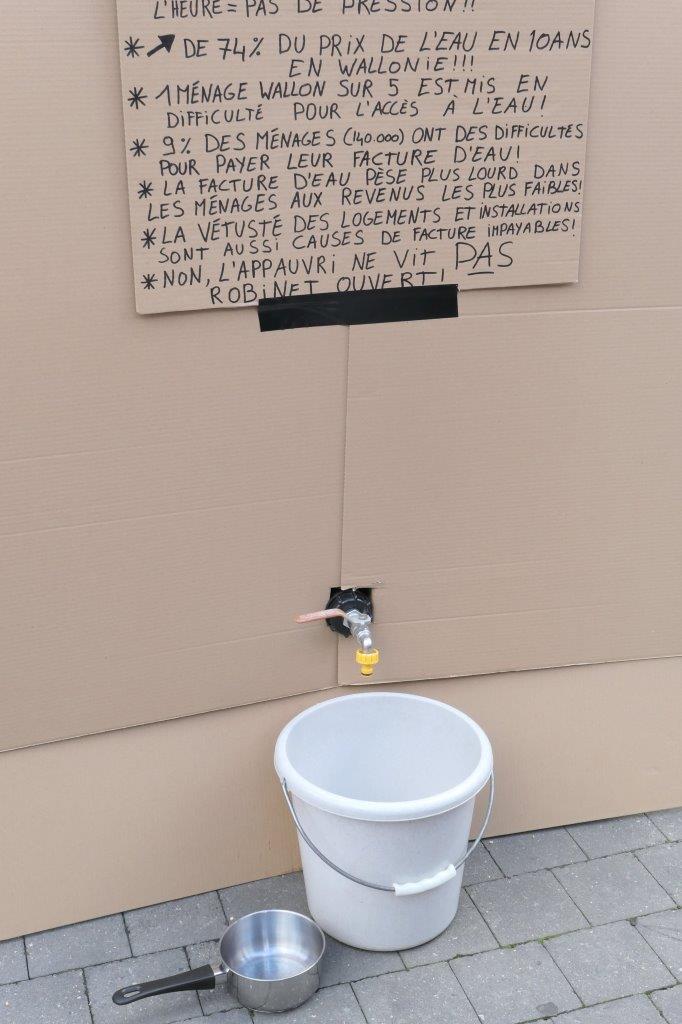 L'HEURE = PAS DE PRESSION!!
* ↗ DE 74% DU PRIX DE L'EAU EN 10ANS
EN WALLONIE!!!
* 1 MÉNAGE WALLON SUR 5 EST MIS EN
DIFFICULTÉ POUR L'ACCÈS À L'EAU!
* 9% DES MÉNAGES (140.000) ONT DES DIFFICULTÉS
POUR PAYER LEUR FACTURE D'EAU!
* LA FACTURE D'EAU PÈSE PLUS LOURD DANS
LES MÉNAGES AUX REVENUS LES PLUS FAIBLES!
* LA VÉTUSTÉ DES LOGEMENTS ET INSTALLATIONS
SONT AUSSI CAUSES DE FACTURE IMPAYABLES!
* NON, L'APPAUVRI NE VIT PAS
ROBINET OUVERT!